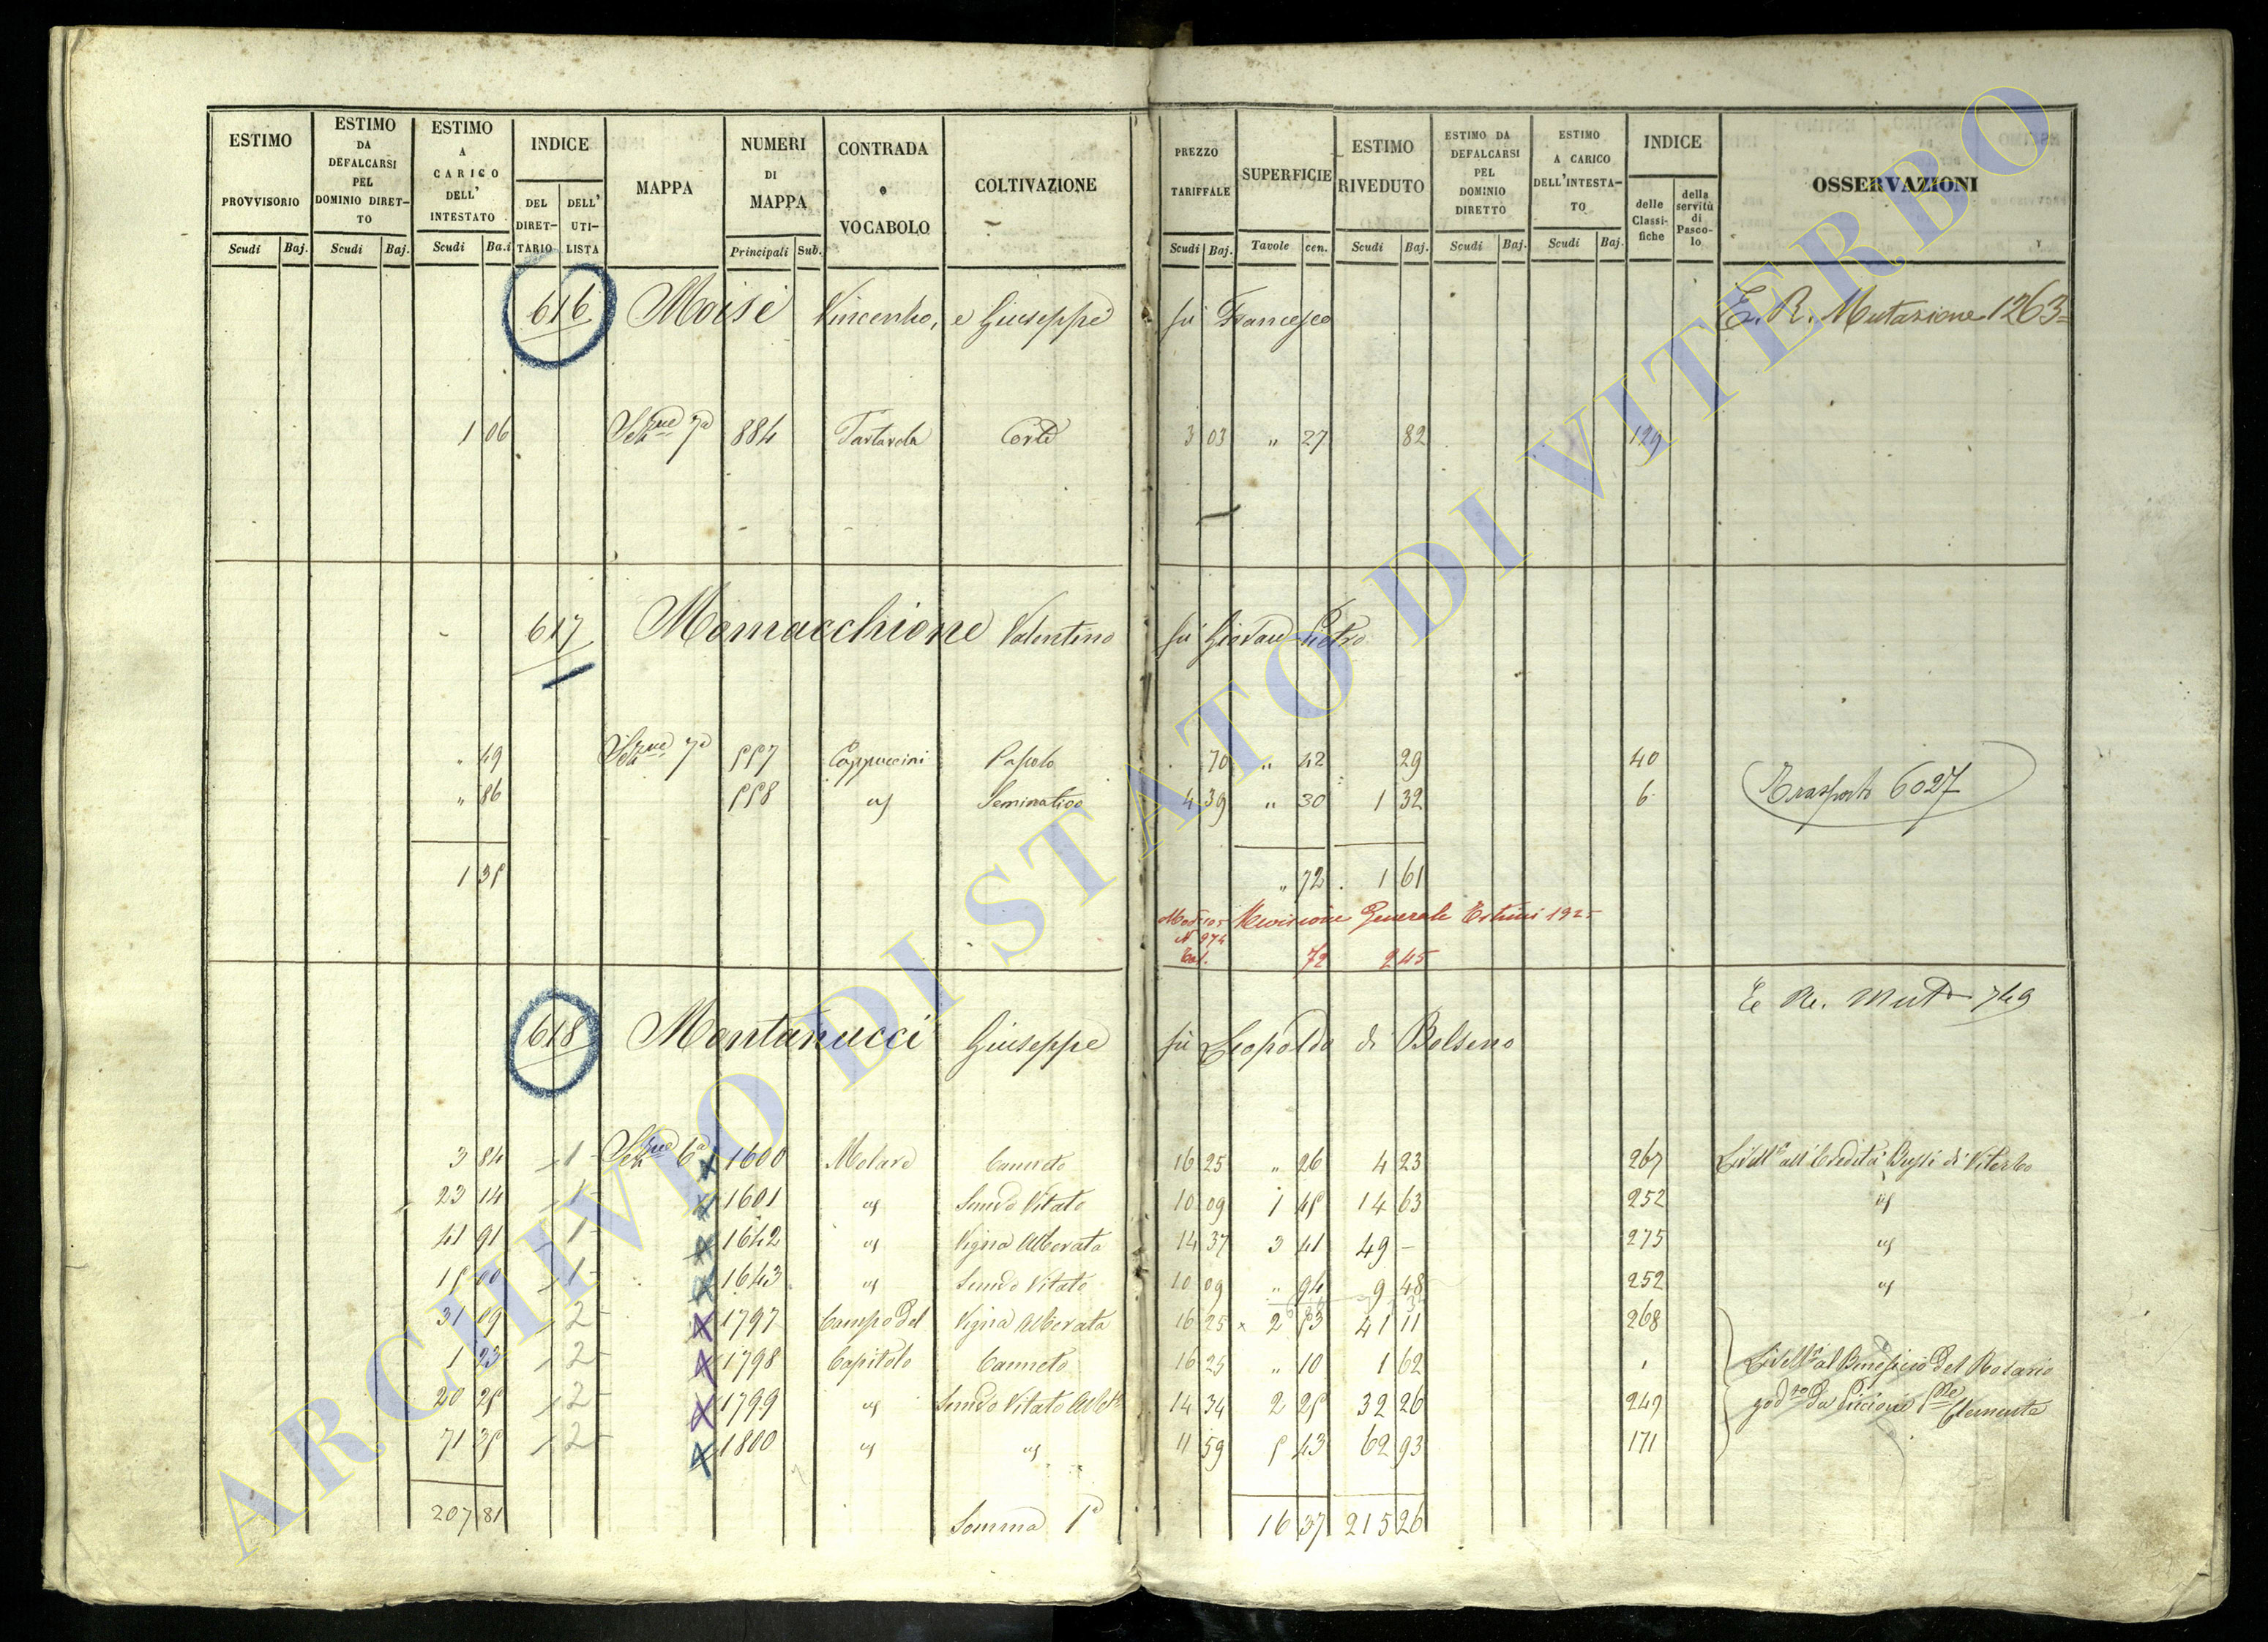 ESTIMO PROVVISORIO | ESTIMO DA DEFALCARSI PEL DOMINIO DIRETTO | ESTIMO A CARICO DELL' INTESTATO | INDICE | MAPPA | NUMERI DI MAPPA | CONTRADA o VOCABOLO | COLTIVAZIONE | PREZZO TARIFFALE | SUPERFICIE | ESTIMO RIVEDUTO | ESTIMO DA DEFALCARSI PEL DOMINIO DIRETTO | ESTIMO A CARICO DELL'INTESTATO | INDICE | OSSERVAZIONI
DEL DIRETTARIO | DELL' UTILISTA | delle Classifiche | della servitù di Pascolo
Scudi | Baj. | Scudi | Baj. | Scudi | Ba.i | Principali | Sub. | Scudi | Baj. | Tavole | cen. | Scudi | Baj. | Scudi | Baj. | Scudi | Baj.
616 Moisè Vincenzo, e Giuseppe fù Francesco E. R. Mutazione 1263=
1 06 Sezne 7a 884 Tartarola Corte 3 03 " 27 82 129
617 Momacchione Valentino fù Giovan Pietro
" 49 Sezne 7a 557 Cappuccini Pascolo 70 " 42 29 40
" 86 558 as Seminativo 4 39 " 30 1 32 6 Trasporto 6027
1 35 " 72 1 61
Revisione Generale Estimi 192
N 974
72 2 45
E Re. Mut 749
618 Montanucci Giuseppe fù Leopoldo di Bolseno
3 84 1 Sezne 6a 1600 Molaro Canneto 16 25 " 26 4 23 267 Livellо all'Eredità di Viterbo
23 14 1 1601 as Semvo Vitato 10 09 1 45 14 63 252 as
41 91 1 1642 as Vigna Alberata 14 37 3 41 49 - 275 as
15 00 1 1643 as Semvo Vitato 10 09 " 94 9 48 252 as
31 09 2 1797 Campo del Vigna Alberata 16 25 2 53 41 11 268
1 23 2 1798 Capitolo Canneto 16 25 " 10 1 62 " Livello al Beneficio del Rosario
20 25 2 1799 as Semvo Vitato Albto 14 34 2 25 32 26 249 godno da Clemente
71 35 2 1800 as as 11 59 5 43 62 93 171
207 81 Somma Pa 16 37 215 26
ARCHIVIO DI STATO DI VITERBO